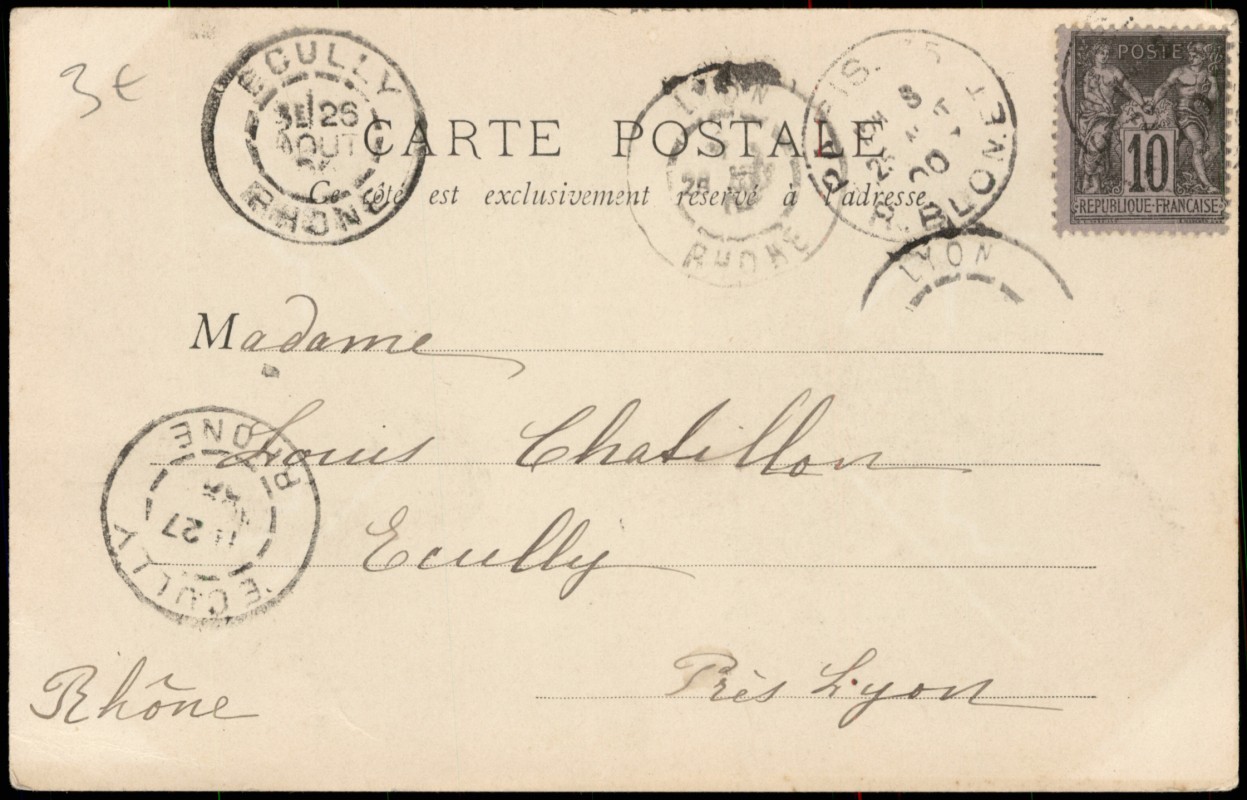 3€
ECULLY
26
AOUT
RHONE
LYON
RHONE
PARIS
R. BLOMET
POSTE
10
REPUBLIQUE-FRANCAISE
CARTE POSTALE
Ce côté est exclusivement réservé à l'adresse
LYON
Madame
Louis Chatillon
Ecully
Près Lyon
Rhône
RHONE
27
ECULLY